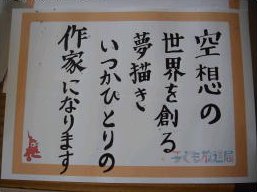 空想の
世界を創る
夢描き
いつかひとりの
作家になります
子ども放送局